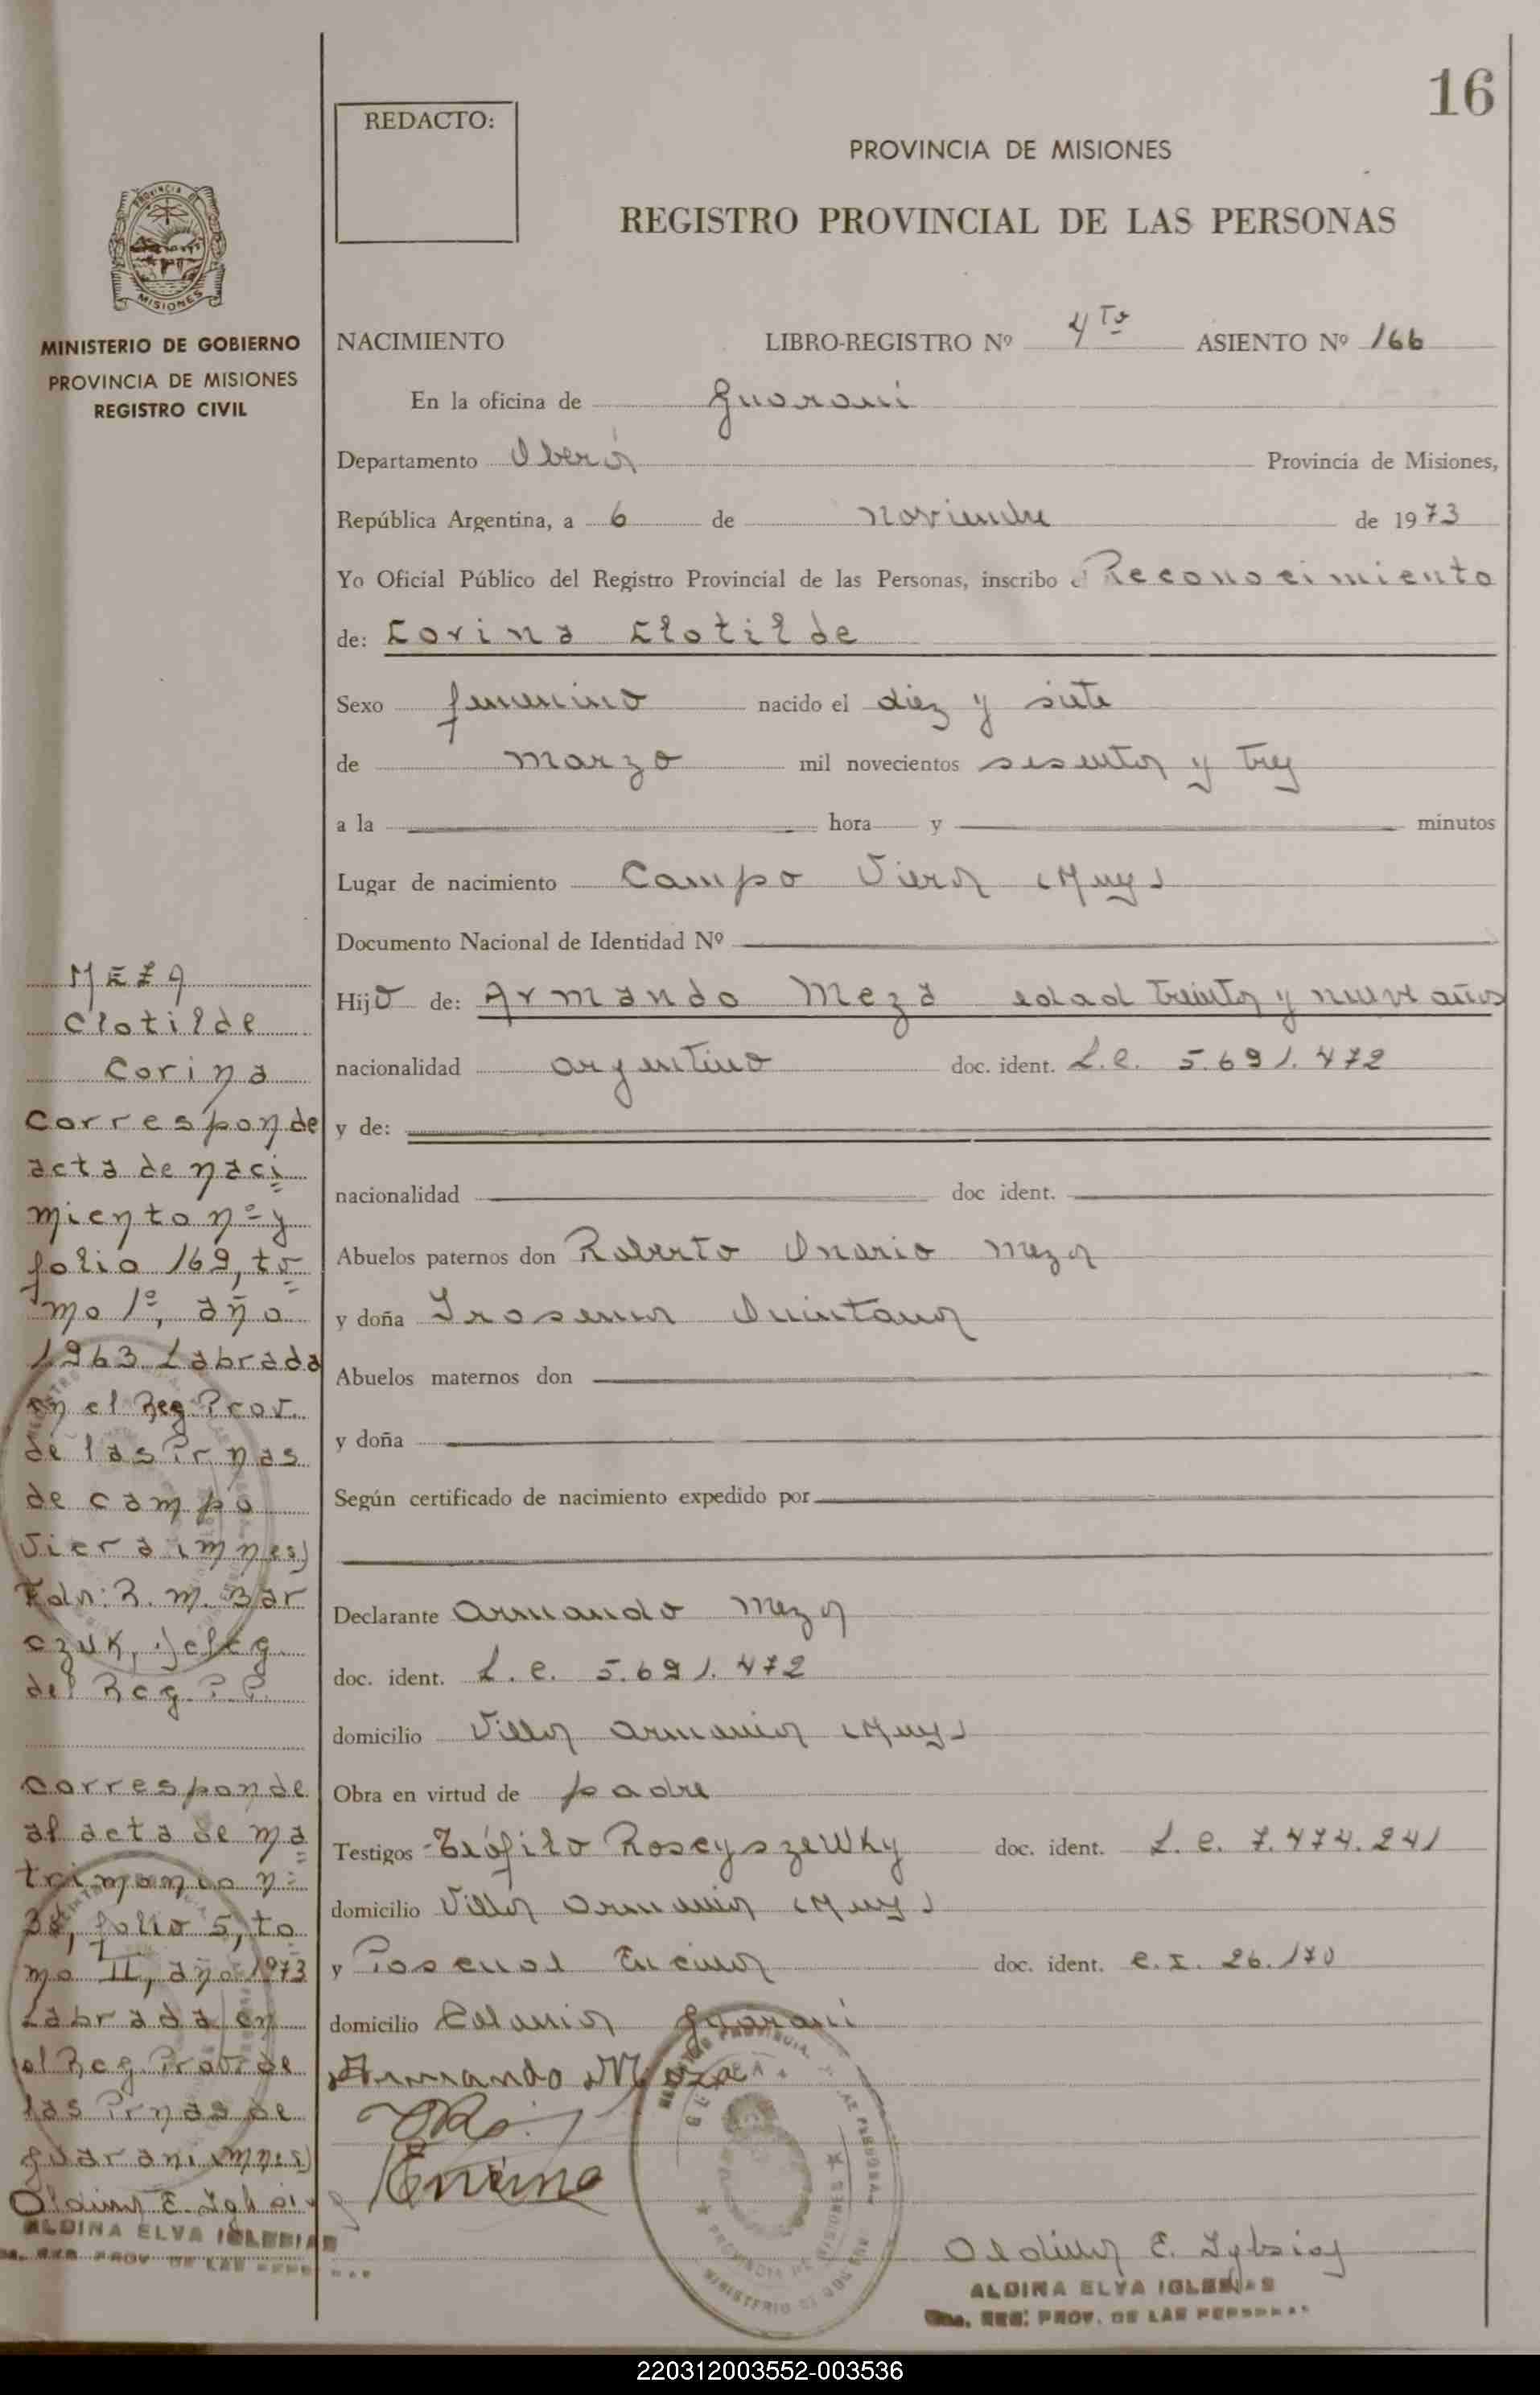 16
REDACTO:
PROVINCIA DE MISIONES
REGISTRO PROVINCIAL DE LAS PERSONAS
PROVINCIA DE
MISIONES
MINISTERIO DE GOBIERNO
PROVINCIA DE MISIONES
REGISTRO CIVIL
NACIMIENTO LIBRO-REGISTRO Nº 4to ASIENTO Nº 166
En la oficina de Guaraní
Departamento Oberá Provincia de Misiones,
República Argentina, a 6 de noviembre de 1973
Yo Oficial Público del Registro Provincial de las Personas, inscribo el Reconocimiento
de: Corina Clotilde
Sexo femenino nacido el diez y siete
de marzo mil novecientos sesenta y tres
a la hora y minutos
Lugar de nacimiento Campo Viera (Mnes)
Documento Nacional de Identidad Nº
Hijo de: Armando Meza edad treinta y nueve años
nacionalidad argentino doc. ident. L.E. 5.691.472
y de:
nacionalidad doc ident.
Abuelos paternos don Roberto Onario Meza
y doña Quintana
Abuelos maternos don
y doña
Según certificado de nacimiento expedido por
Declarante Armando Meza
doc. ident. L.E. 5.691.472
domicilio Villa Armonia (Mnes)
Obra en virtud de padre
Testigos Teófilo doc. ident. L.E. 7.474.241
domicilio Villa Armonia (Mnes)
y Pascual Encina doc. ident. C.I. 26.170
domicilio Colonia Guaraní
Armando Meza
Encina
Aldina E. Iglesias
ALDINA ELVA IGLESIAS
REG. PROV. DE LAS PERSONAS
MEZA
Clotilde
Corina
Corresponde
acta de naci
miento nº y
folio 169, to
mo 1º, año
1963 Labrada
en el Reg. Prov.
de las Prnas
de Campo
Viera (mnes)
Fdo: R. M. Bar
czuk, Deleg.
del Reg. P.P.
Corresponde
al acta de ma
trimonio nº
38, folio 5, to
mo II, año 1973
Labrada en
el Reg. Prov. de
las Prnas de
guarani (mnes)
Aldina E. Iglesias
ALDINA ELVA IGLESIAS
REG. PROV. DE LAS PERSONAS
220312003552-003536